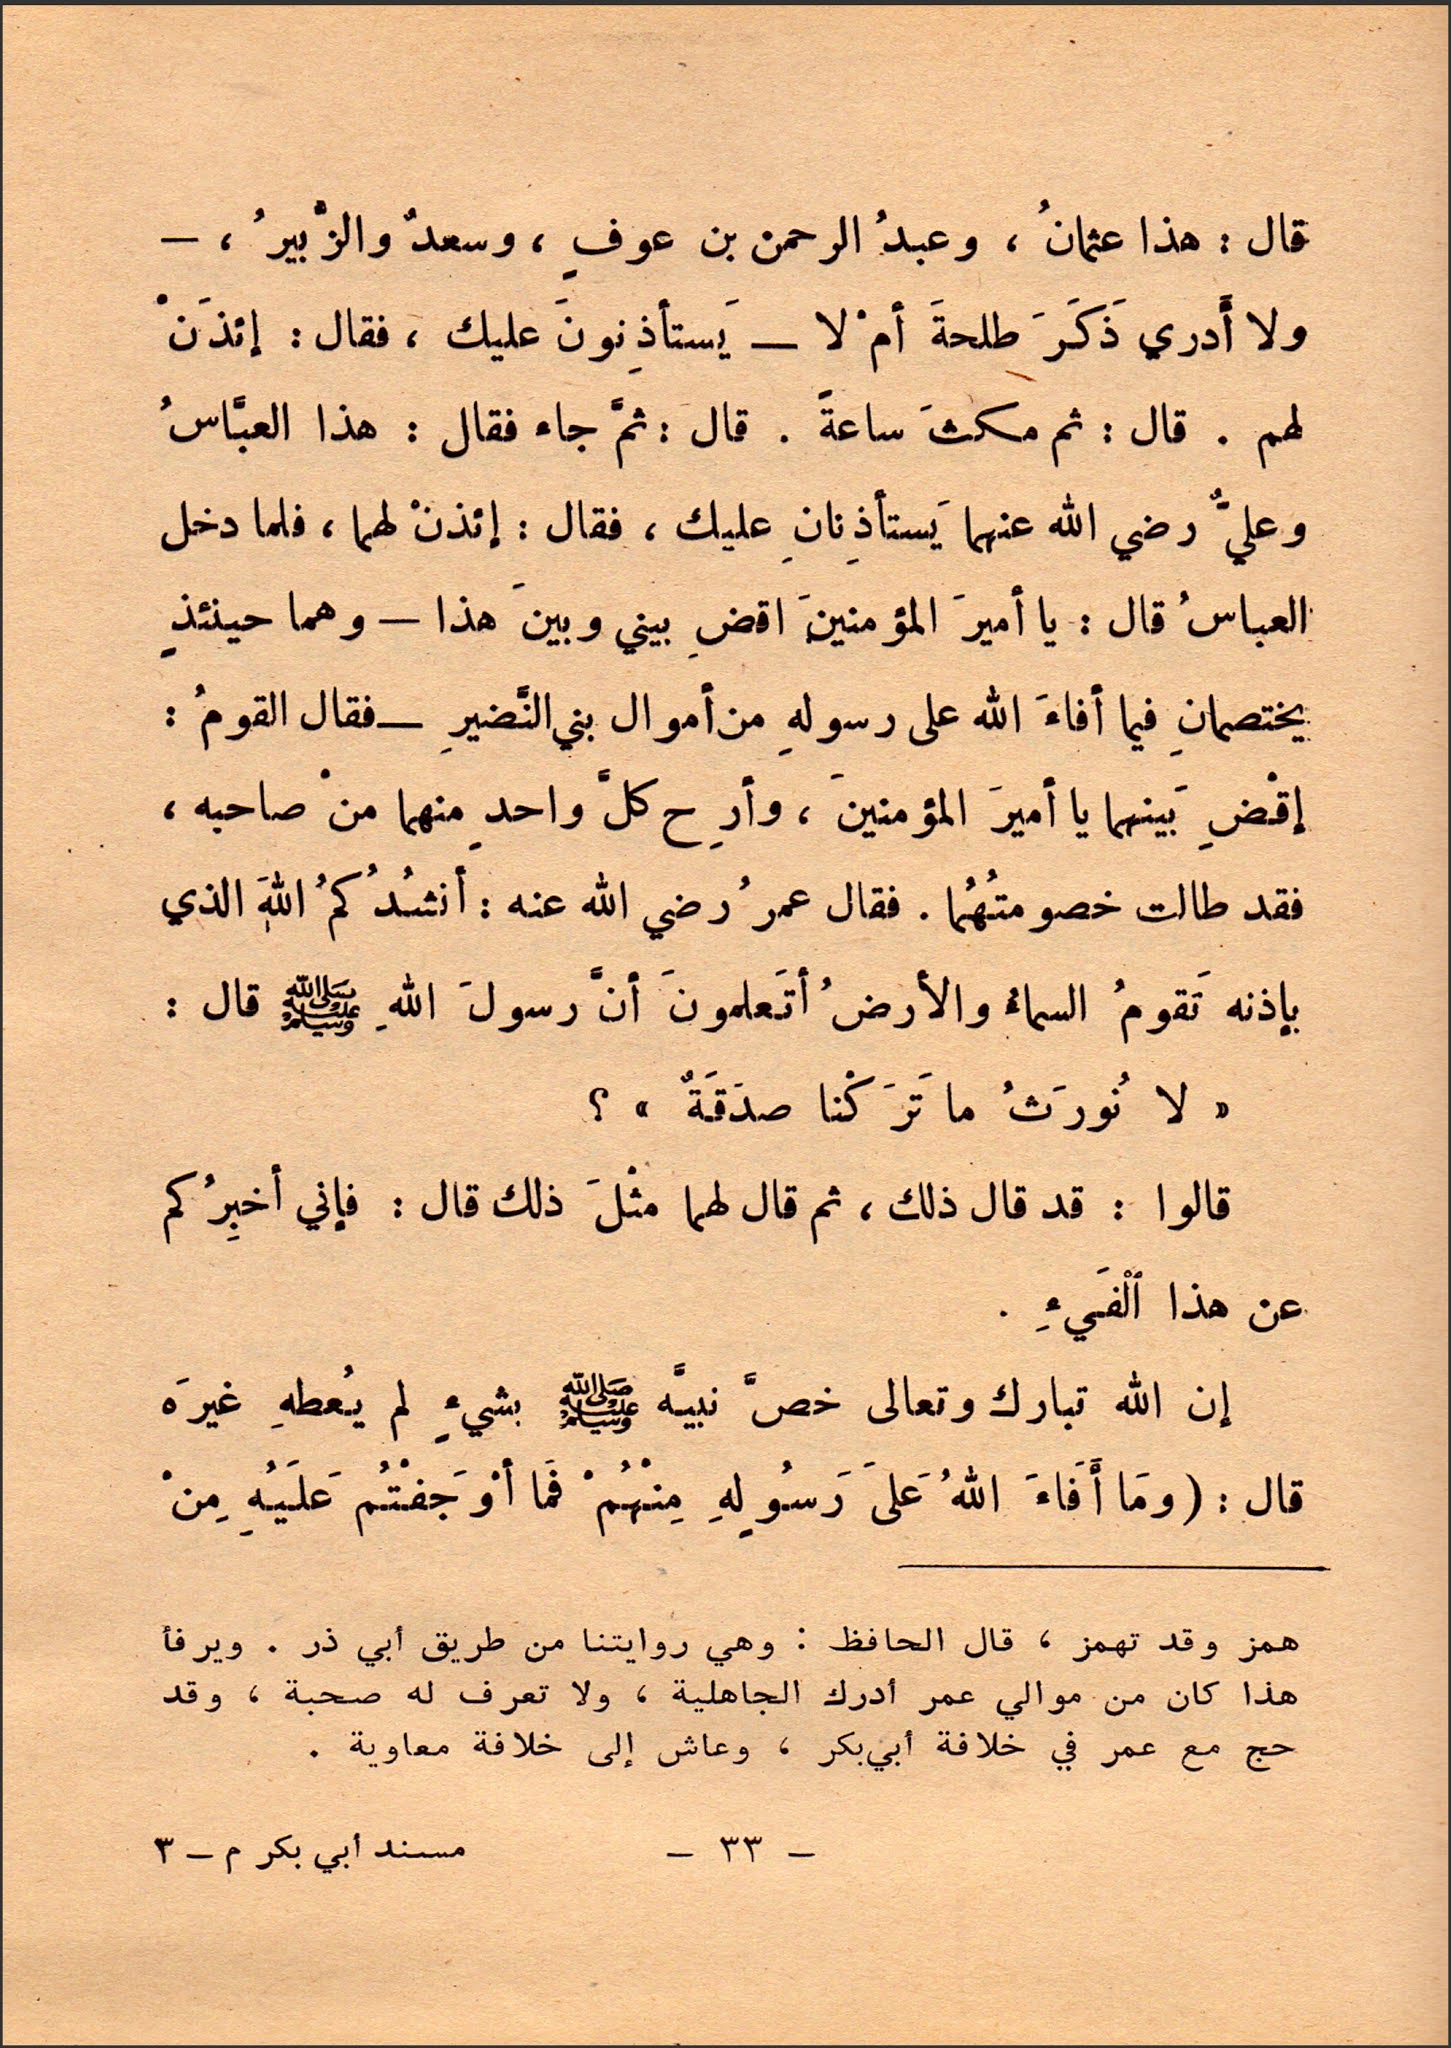 قال : هذا عثمانُ ، وعبدُ الرحمن بن عوفٍ ، وسعدٌ والزْبيرُ ، —
ولا أَدري ذَكَرَ طلحةَ أمْ لا — يَستأذِنونَ عليك ، فقال : إئذَنْ
لهم . قال : ثم مكثَ ساعةً . قال : ثمَّ جاء فقال : هذا العبَّاسُ
وعليٌّ رضي الله عنهما يَستأذِنانِ عليك ، فقال : إئذنْ لهما ، فلما دخل
العباسُ قال : يا أميرَ المؤمنينَ اقضِ بيني وبينَ هذا — وهما حينئذٍ
يختصمانِ فيما أفاءَ الله على رسولهِ من أموال بني النَّضيرِ — فقال القومُ :
إقْضِ بَينهما يا أميرَ المؤمنينَ ، وأرِح كلَّ واحدٍ منهما منْ صاحبه ،
فقد طالت خصومتُهُما . فقال عمرُ رضي الله عنه : أنشُدُكمُ اللهَ الذي
بإذنه تَقومُ السماءُ والأرضُ أتَعلمونَ أنَّ رسولَ اللهِ ﷺ قال :
« لا نُورَثُ ما تَرَكْنا صدَقَةٌ » ؟
قالوا : قد قال ذلك ، ثم قال لهما مثْلَ ذلك قال : فإني أخبِرُكم
عن هذا ٱلْفَيءِ .
إن الله تبارك وتعالى خصَّ نبيَّه ﷺ بشيءٍ لم يُعطهِ غيرَه
قال : ( ومَا أَفَاءَ اللهُ عَلىَ رَسُولِهِ مِنْهُمْ فَمَا أوْجَفْتُم عَلَيْهِ مِنْ
همز وقد تهمز ، قال الحافظ : وهي روايتنا من طريق أبي ذر . ويرفأ
هذا كان من موالي عمر أدرك الجاهلية ، ولا تعرف له صحبة ، وقد
حج مع عمر في خلافة أبي بكر ، وعاش إلى خلافة معاوية .
– ٣٣ –
مسند أبي بكر م – ٣